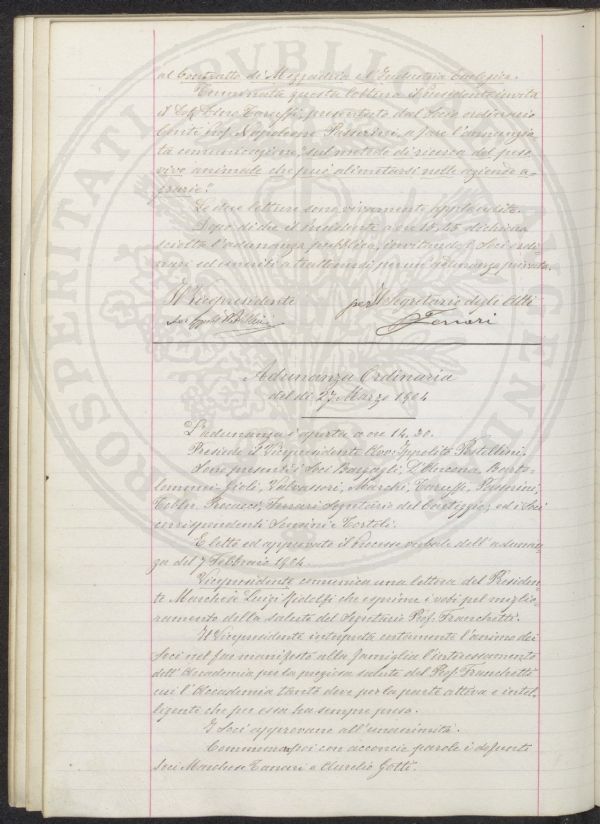 al Contratto di Mezzadria e l'Industria Enologica.
Terminata questa lettura il Presidente invita
il Dott. Piero Taruffi, presentato dal Socio ordinario
Conte Prof. Napoleone Passerini, a fare l'annunzia-
ta comunicazione "sul metodo di ricerca del peso
vivo animale che può alimentarsi nelle aziende a-
grarie."
Le due letture sono vivamente applaudite.
Dopo di che il Presidente a ore 15,45 dichiara
sciolta l'adunanza pubblica, invitando i Soci ordi-
nari ed emeriti a trattenersi per un'adunanza privata.
Il Vicepresidente per Il Segretario degli Atti
Ferrari
Adunanza Ordinaria
del dì 27 Marzo 1904
L'adunanza è aperta a ore 14.20.
Presiede il Vicepresidente Avv. Ippolito Pestellini.
Sono presenti i Soci Bargagli, D'Ancona, Barto-
lommei Gioli, Valvassori, Marchi, Taruffi, Passerini,
Pecori, Ferrari Segretario del Carteggio; ed i Soci
corrispondenti Sensini e Tortoli.
È letto ed approvato il processo verbale dell'adunan-
za del 7 Febbraio 1904.
Vicepresidente comunica una lettera del Presiden-
te Marchese Luigi Ridolfi che esprime i voti pel miglio-
ramento della salute del Segretario Prof. Franchetti.
Il Vicepresidente interpreta certamente l'animo dei
Soci nel far manifesto alla famiglia l'interessamento
dell'Accademia per la preziosa salute del Prof. Franchetti
cui l'Accademia tanto deve per la parte attiva e intel-
ligente che per essa ha sempre preso.
I Soci approvano all'unanimità.
Commemora poi con acconcie parole i defunti
Soci Marchese Tanari e Aurelio Gotti.
PROSPERITATI PVBLICAE AVGENDAE